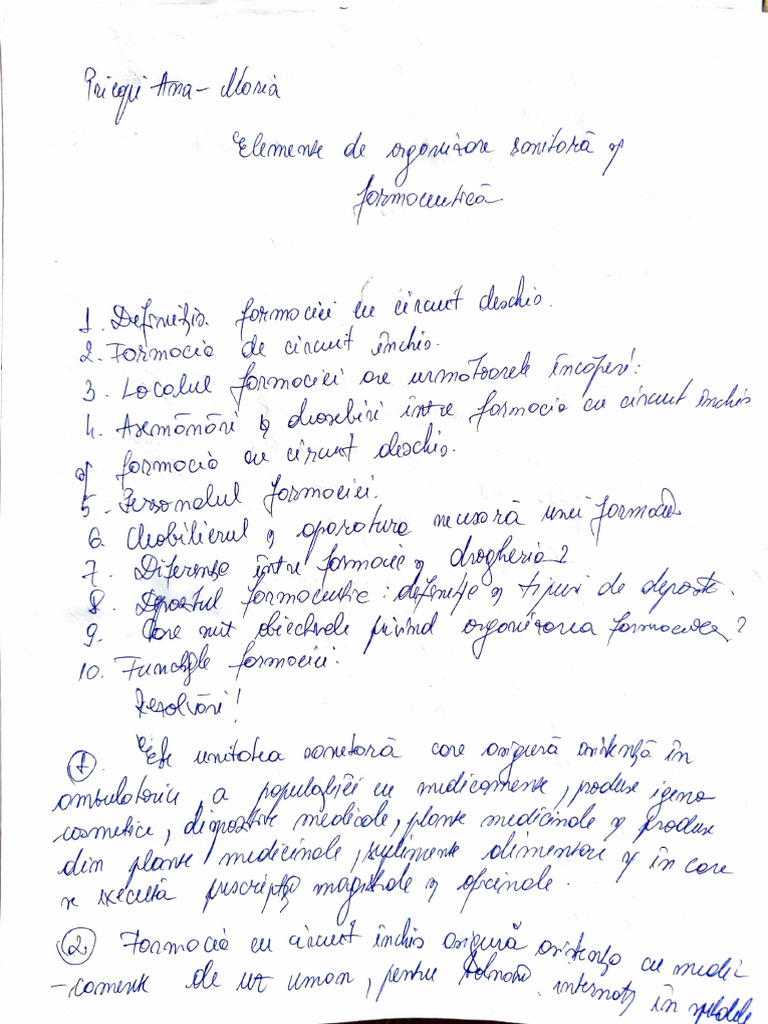 Ana-Maria
Elemente de organizare sanitară și
farmaceutică
1. Definiția farmaciei cu circuit deschis.
2. Farmacia de circuit închis.
3. Localul farmaciei are următoarele încăperi:
4. Asemănări și deosebiri între farmacia cu circuit închis
și farmacia cu circuit deschis.
5. Personalul farmaciei.
6. Mobilierul și aparatura necesară unei farmacii
7. Diferențe între farmacie și drogheria?
8. Depozitul farmaceutic: definiție și tipuri de depozite.
9. Care sunt obiectivele privind organizarea farmaciei?
10. Funcțiile farmaciei.
Rezolvări!
1. Este unitatea sanitară care asigură asistență în
ambulatoriu, a populației cu medicamente, produse igeno
cosmetice, dispozitive medicale, plante medicinale și produse
din plante medicinale, suplimente alimentare și în care
se execută prescripții magistrale și oficinale.
2. Farmacia cu circuit închis asigură asistența cu medi
-camente de uz uman, pentru bolnavii internați în spitale